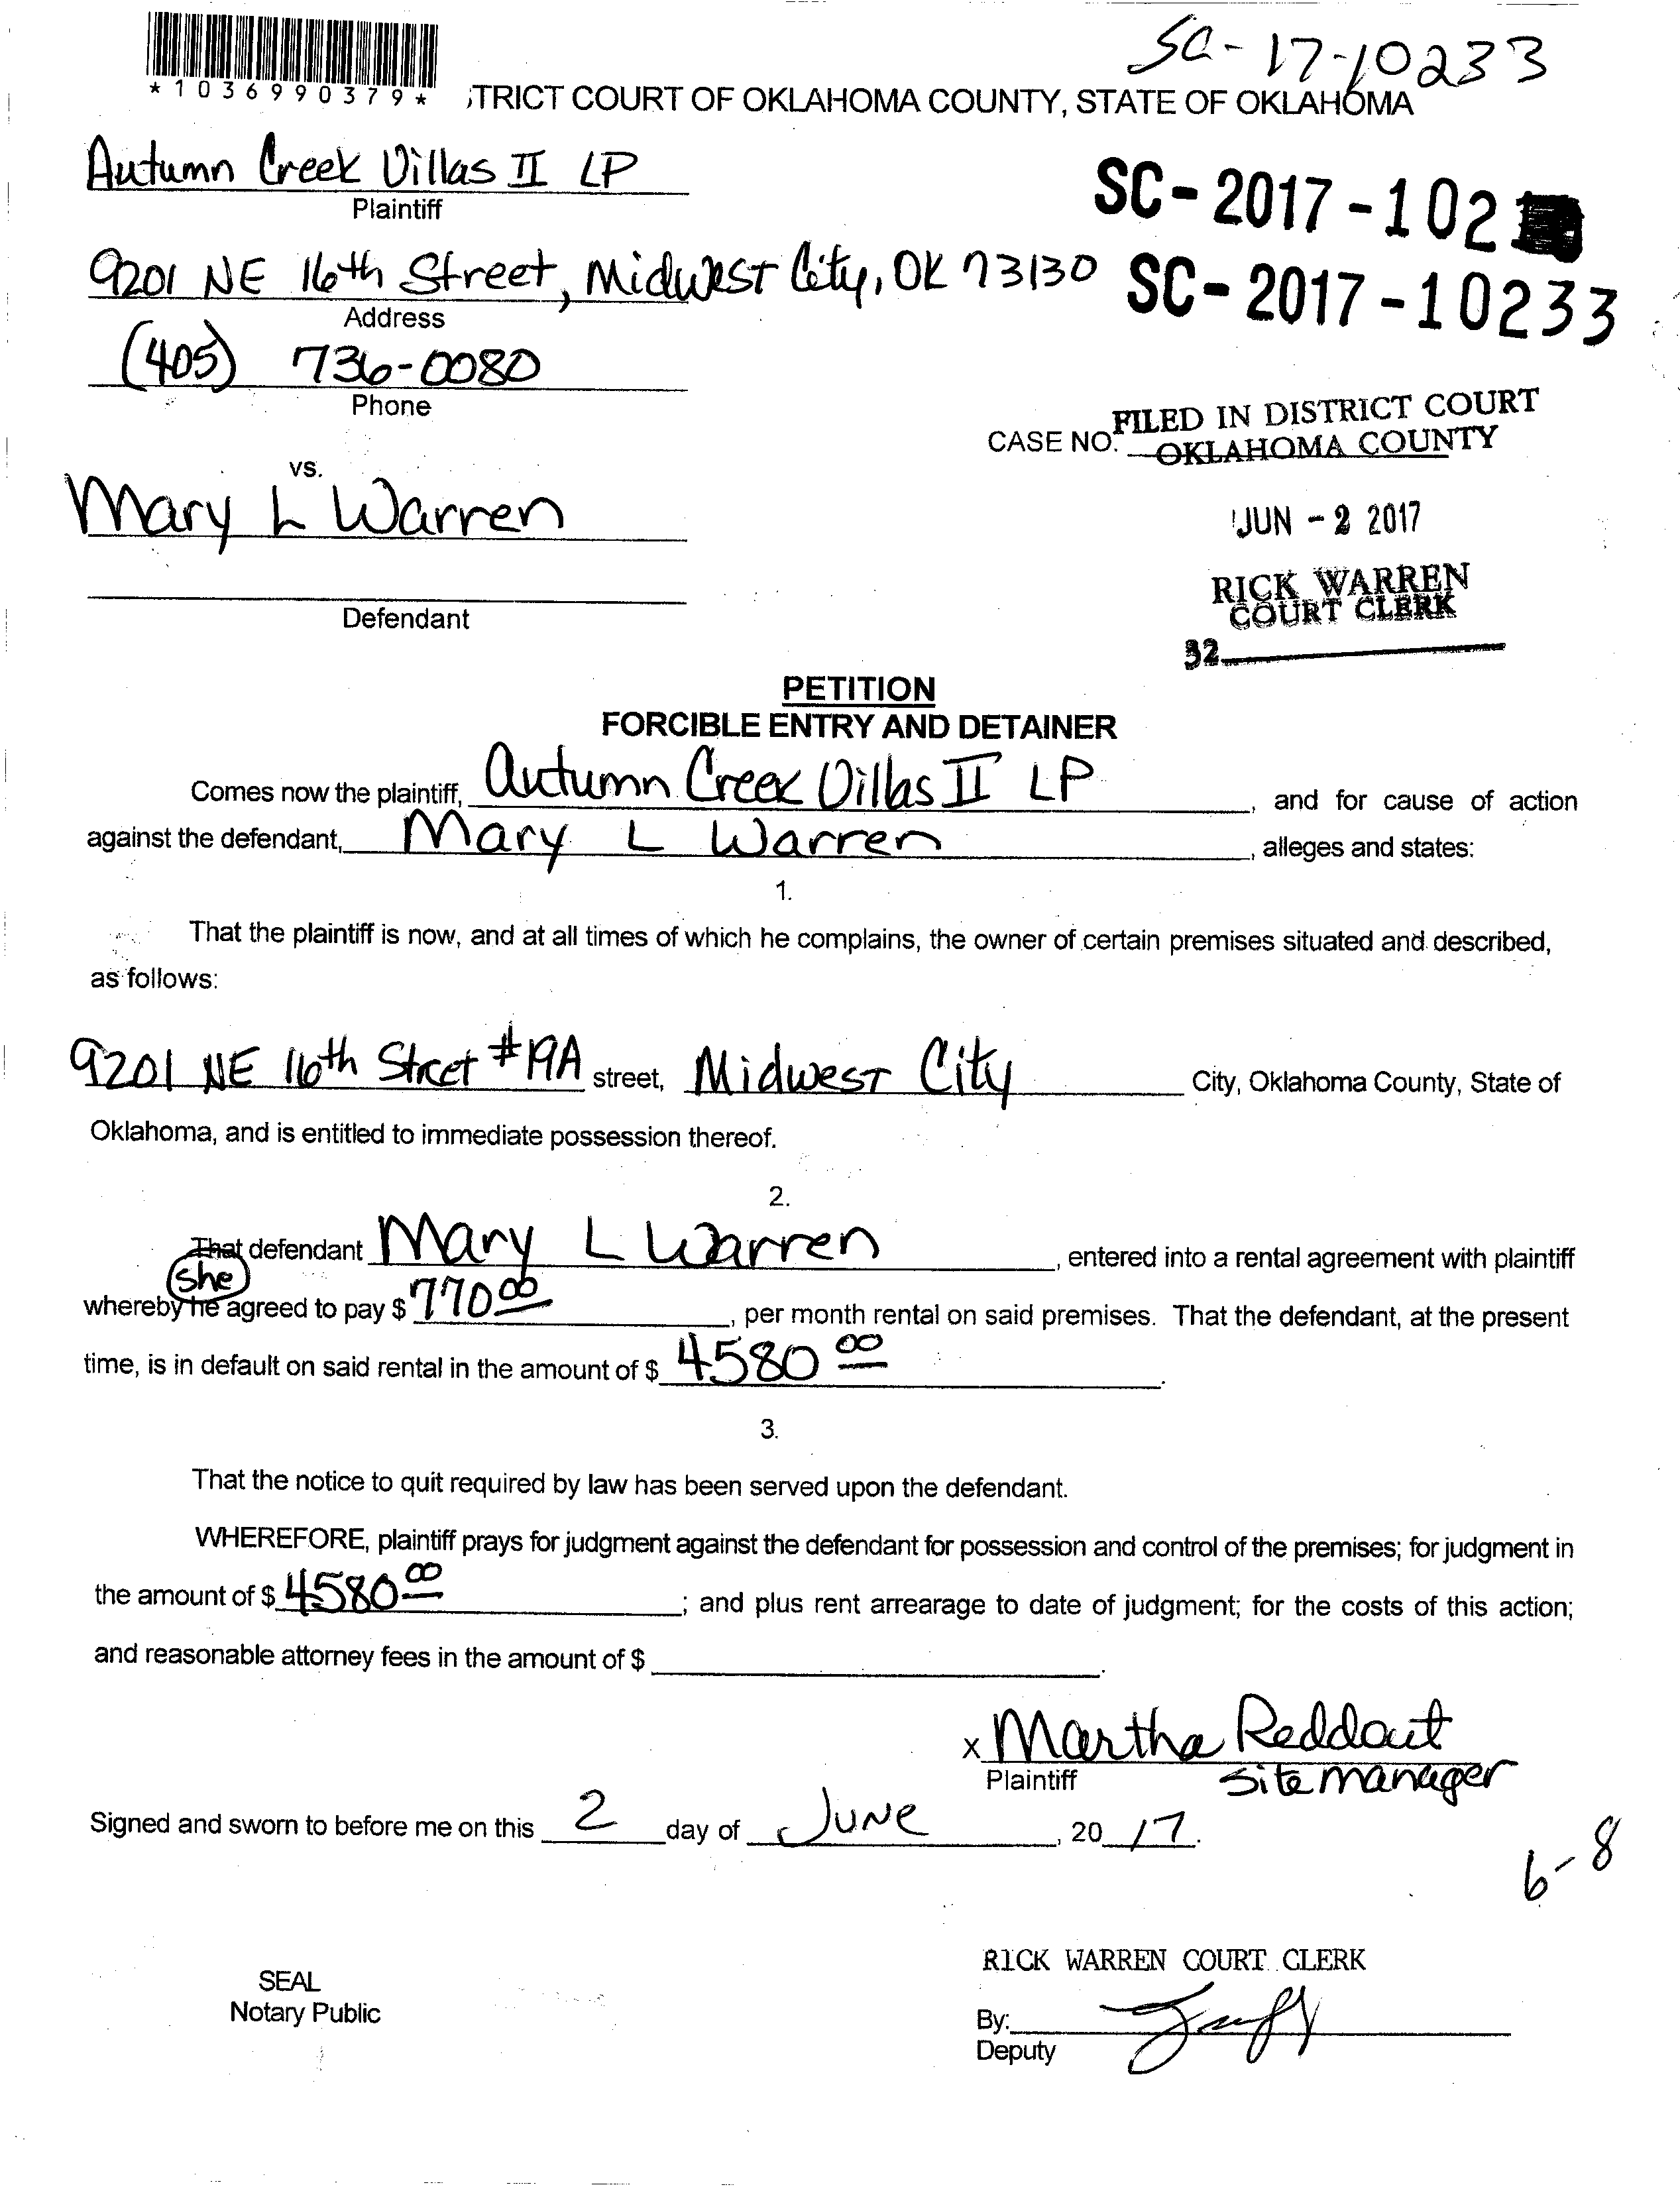 SC-17-10233
*1036990379*
TRICT COURT OF OKLAHOMA COUNTY, STATE OF OKLAHOMA
Autumn Creek Villas II LP
Plaintiff
SC-2017-102
9201 NE 16th Street, Midwest City, OK 73130
SC-2017-10233
Address
(405) 736-0080
Phone
CASE NO.
FILED IN DISTRICT COURT
OKLAHOMA COUNTY
vs.
Mary L Warren
JUN - 2 2017
RICK WARREN
COURT CLERK
Defendant
32
PETITION
FORCIBLE ENTRY AND DETAINER
Comes now the plaintiff, Autumn Creek Villas II LP, and for cause of action
against the defendant, Mary L Warren, alleges and states:
1.
That the plaintiff is now, and at all times of which he complains, the owner of certain premises situated and described,
as follows:
9201 NE 16th Street #19A street, Midwest City City, Oklahoma County, State of
Oklahoma, and is entitled to immediate possession thereof.
2.
That defendant Mary L Warren, entered into a rental agreement with plaintiff
she
whereby he agreed to pay $ 770 00, per month rental on said premises. That the defendant, at the present
time, is in default on said rental in the amount of $ 4580 00.
3.
That the notice to quit required by law has been served upon the defendant.
WHEREFORE, plaintiff prays for judgment against the defendant for possession and control of the premises; for judgment in
the amount of $ 4580 00; and plus rent arrearage to date of judgment; for the costs of this action;
and reasonable attorney fees in the amount of $.
x Martha Reddout
Plaintiff Site manager
Signed and sworn to before me on this 2 day of June, 20 17.
6-8
RICK WARREN COURT CLERK
SEAL
Notary Public
By:
Deputy